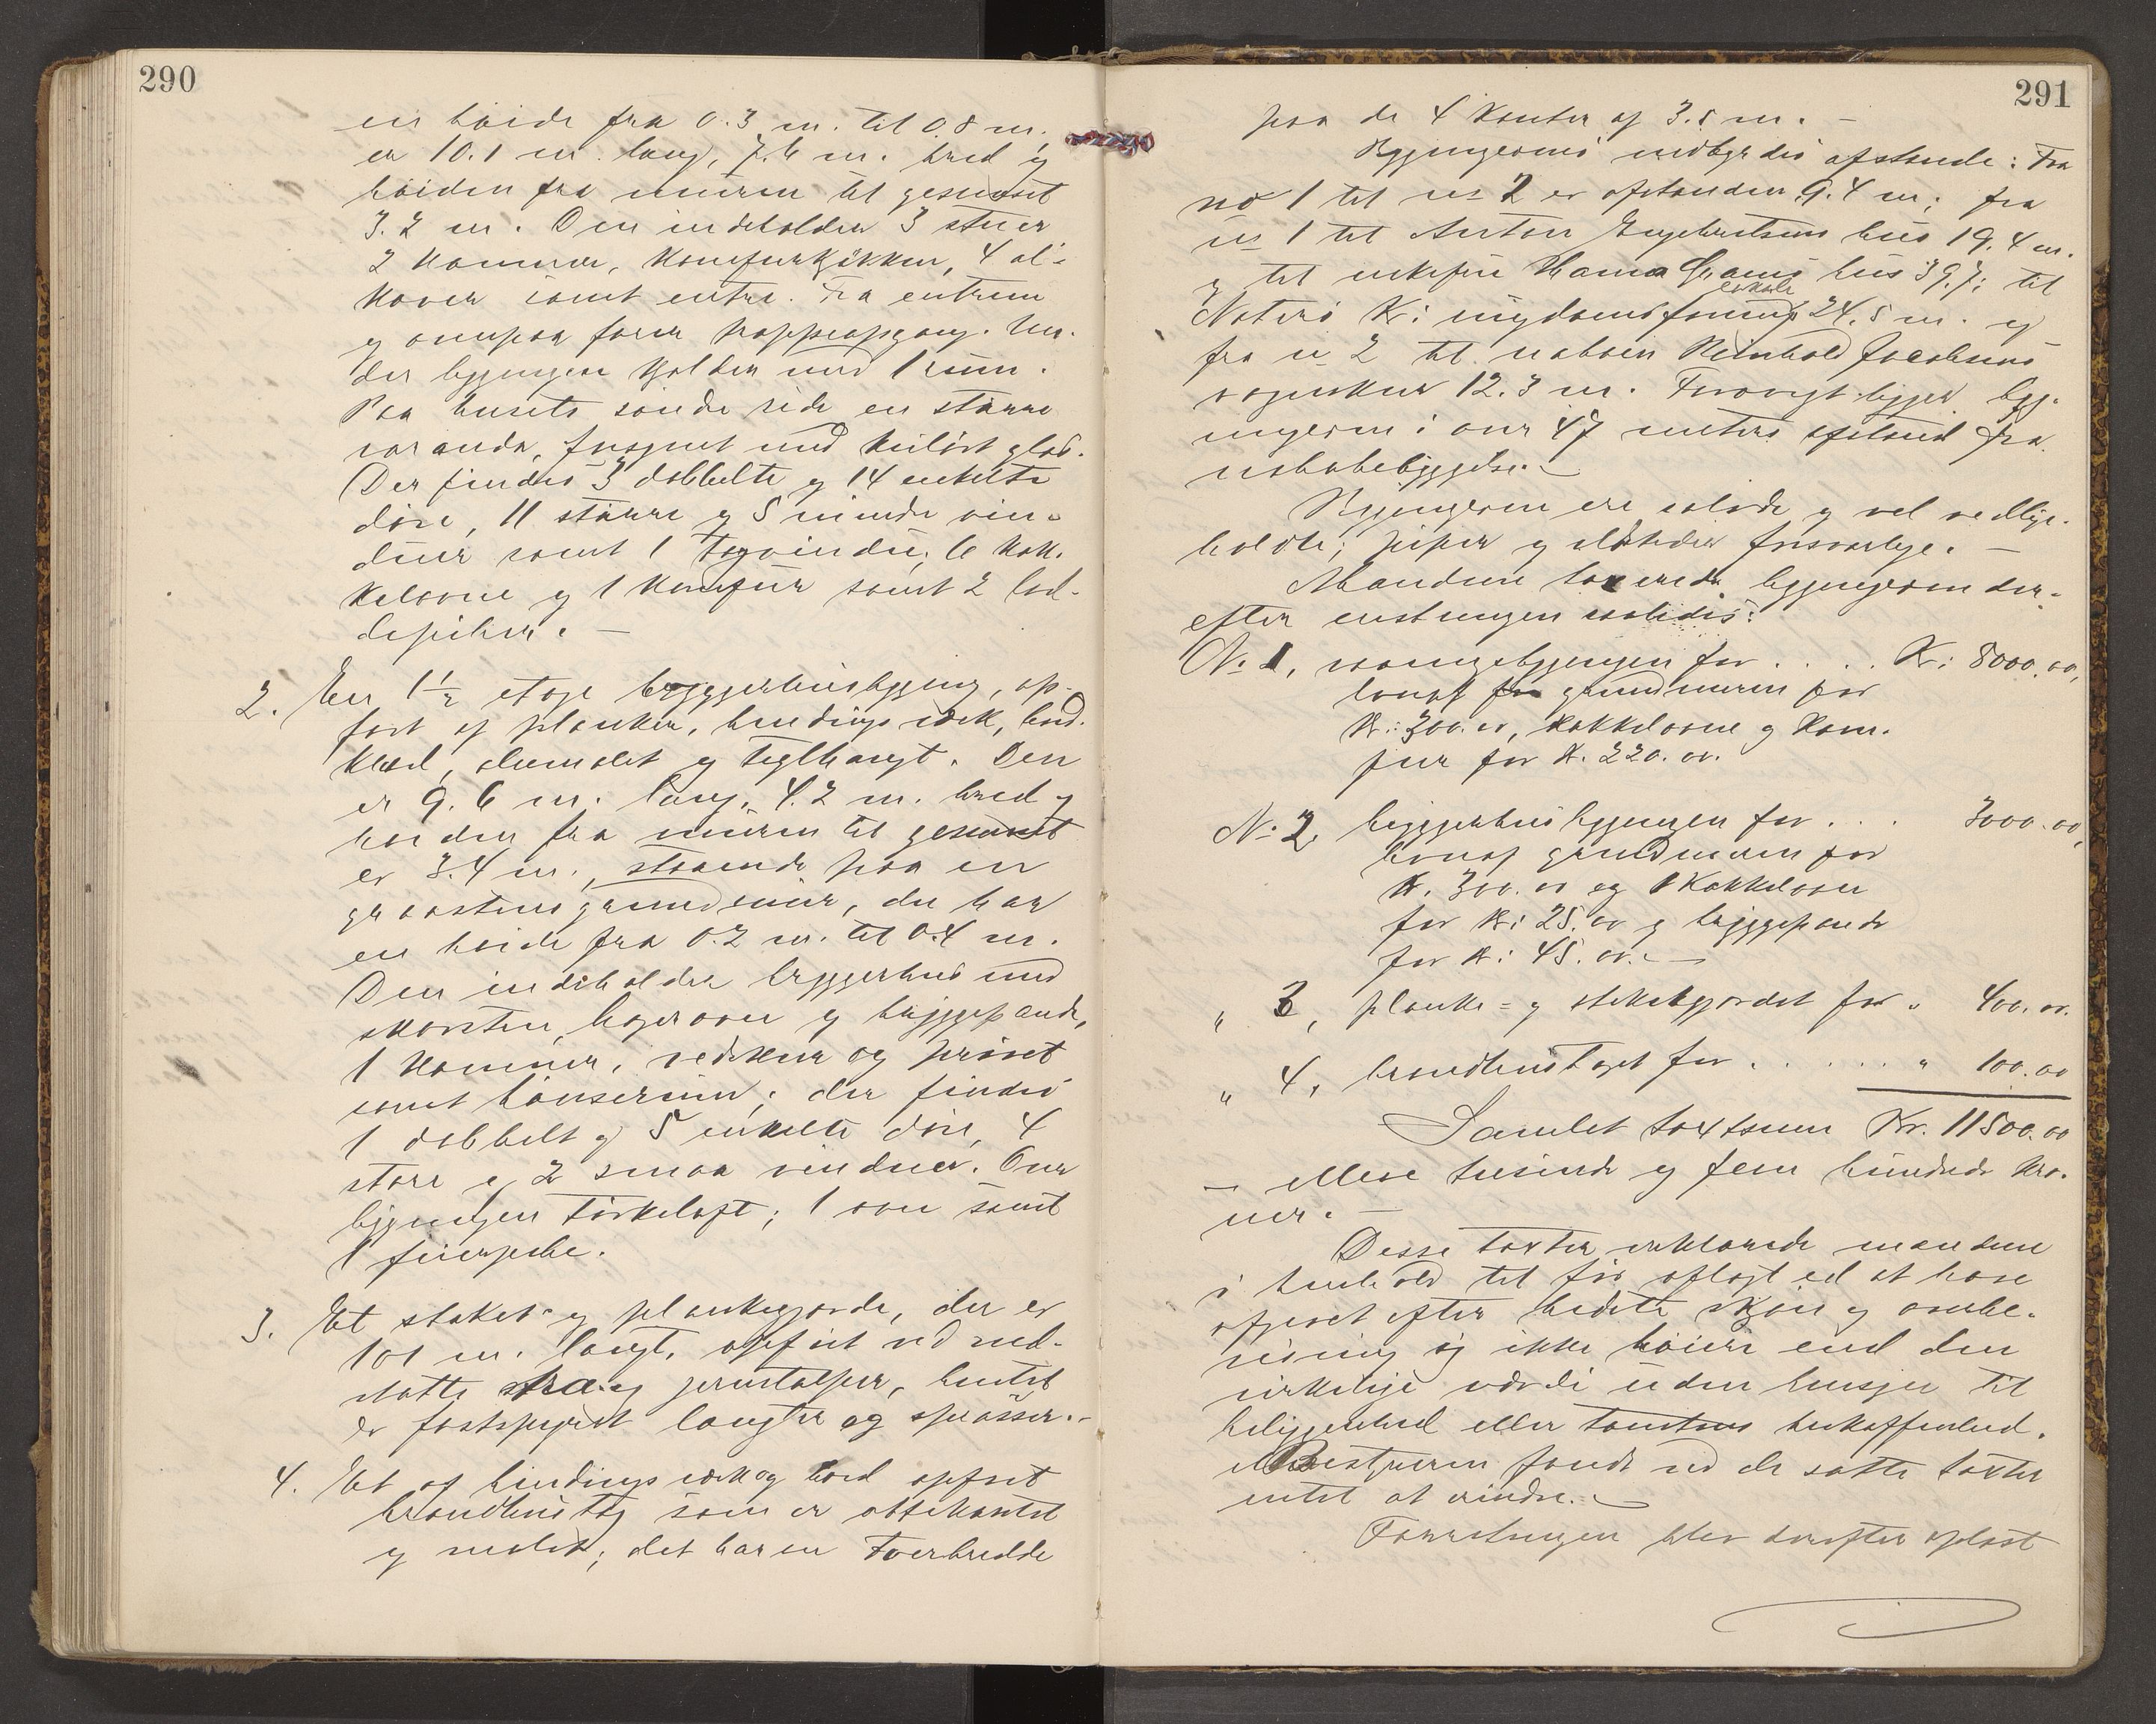 290
en høide fra 0.3 m. til 0.8 m.
er 10.1 m. lang, 7.6 m. bred og
høiden fra muren til gesimset
3.2 m. Den indeholder 3 stuer
2 kammer, komfurkjøkken, 4 al-
kover samt entre. Fra entreen
og ovenpaa fører trappeopgang. Un-
der bygningen kjelder med 1 rum.
Paa husets søndre side en større
veranda, forsynet med kulørt glas.
Der findes 3 dobbelte og 14 enkelte
døre, 11 større og 5 mindre vin-
duer samt 1 tagvindu; 6 kak-
kelovne og 1 komfur samt 2 lod-
depiber. —
2. En 1½ etage bryggerhusbygning, op-
ført af planker, bindingsværk, bord-
klæd, oliemalet og teglhængt. Den
er 9.6 m. lang, 4.2 m. bred og
høiden fra muren til gesimset
er 3.4 m., staaende paa en
graastens grundmur, der har
en høide fra 0.2 m. til 0.4 m.
Den indeholder bryggerhus med
skorsten, bagerovn og bryggepande,
1 kammer, vedskur og privet
samt hønserum; der findes
1 dobbelt og 5 enkelte døre, 4
store og 2 smaa vinduer. Over
bygningen tørkeloft; 1 ovn samt
1 fuerpibe.
3. Et staket- og plankegjærde, der er
101 m. langt, opført ved ned-
satte træ og jernstolper, hvortil
er fastspigret langtrær og sprosser. -
4. Et af bindingsværk og bord opført
brøndhustag som er ottekantet
og malet; det har en tverbredde
291
paa de 4 kanter af 3.5 m. —
Bygningernes indbyrdes afstande: Fra
no 1 til no 2 er afstanden 9.4 m; fra
no 1 til Anton Engebretsens hus 19.4 m.
og til enkefru Hanna hus 39.7; til
Noterø Kr: ungdomsforenings lokale 24.5 m. og
fra no 2 til naboen Reinhold Jacobsens
vognskur 12.3 m. Forøvrigt ligger byg-
ningerne i over 47 meters afstand fra
nabobebyggelse. —
Bygningerne ere solide og vel vedlige-
holdte; piper og ildsteder forsvarlige. —
Mændene taxerede bygningerne der-
efter enstemmigen saaledes:
No 1, vaaningsbygningen for . . . . Kr: 8000.00,
hvoraf for grundmuren for
Kr: 300.00, kakkelovne og kom-
fur for K. 220.00.
No 2, bryggerhusbygningen for . . . 3000.00,
hvoraf grundmuren for
K. 300.00 og 1 kakkelovn
for Kr: 25.00 og bryggepande
for Kr: 45.00. —
„ 3, planke- og staketgjærdet for „ 400.00.
„ 4, brøndhustaget for . . . . . . „ 100.00
Samlet taxtsum Kr. 11500.00
— elleve tusinde og fem hundrede kro-
ner. —
Desse taxter erklærede mændene
i henhold til før aflagt ed at have
afgivet efter bedste skjøn og overbe-
visning og ikke høiere end den
virkelige værdi uden hensyn til
beliggenhed eller tomtens beskaffenhed.
Bestyreren fandt ved de satte taxter
intet at erindre. —
Forretningen blev derefter oplæst